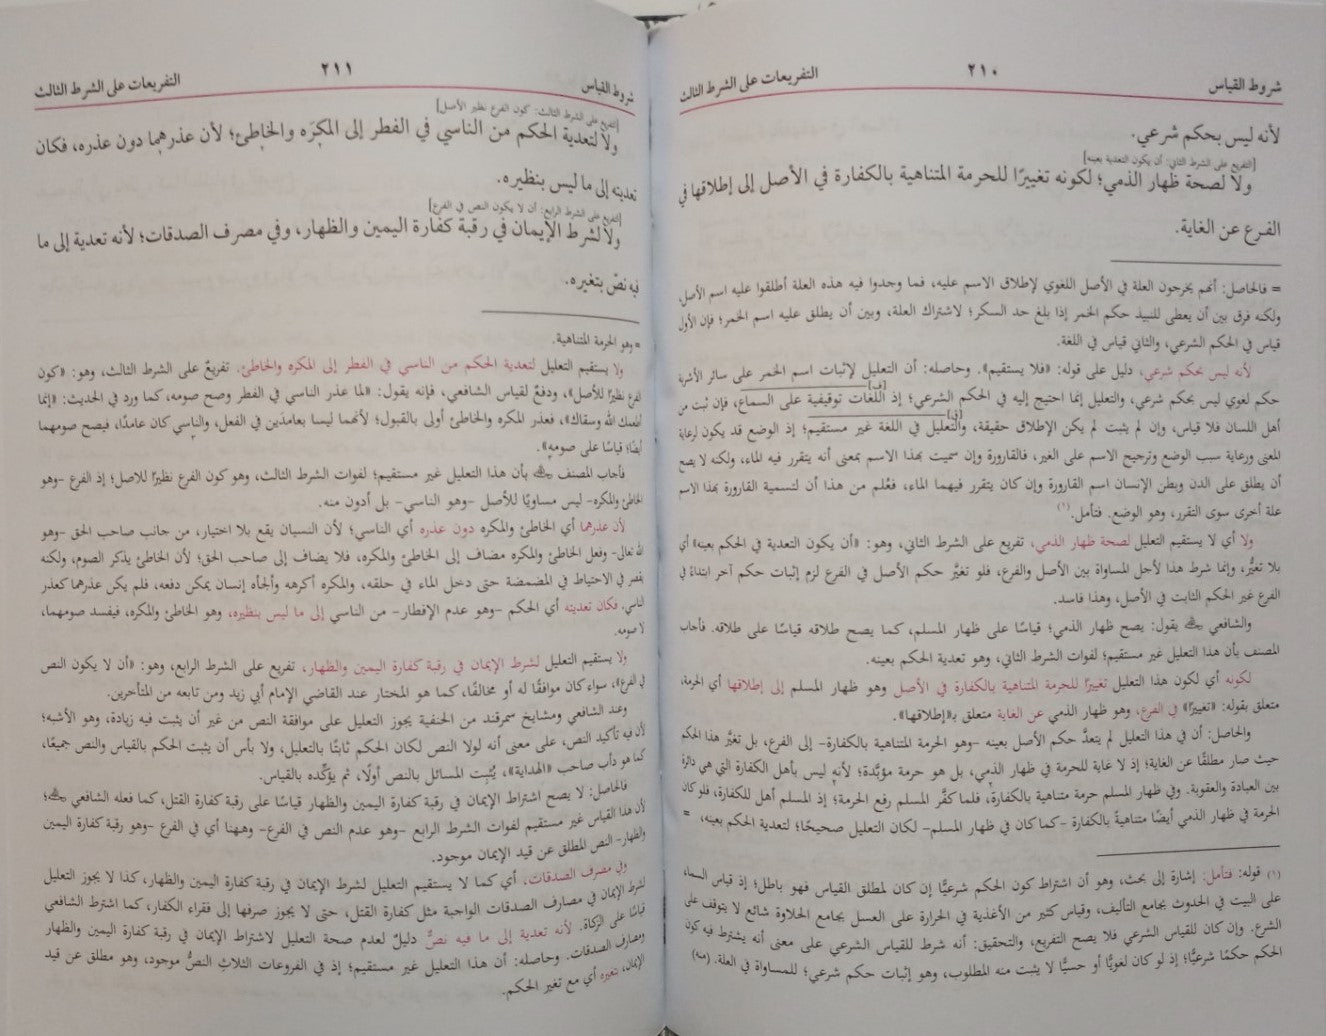 شروط القياس ٢١٠ التفريعات على الشرط الثالث
لأنه ليس بحكم شرعي.
[التفريع على الشرط الثاني: أن يكون التعدية بعينه]
ولا لصحة ظهار الذمي؛ لكونه تغييرًا للحرمة المتناهية بالكفارة في الأصل إلى إطلاقها في
الفرع عن الغاية.
= فالحاصل: أنهم يخرجون العلة في الأصل اللغوي لإطلاق الاسم عليه، فما وجدوا فيه هذه العلة أطلقوا عليه اسم الأصل،
ولكنه فرق بين أن يعطى للنبيذ حكم الخمر إذا بلغ حد السكر؛ لاشتراك العلة، وبين أن يطلق عليه اسم الخمر؛ فإن الأول
قياس في الحكم الشرعي، والثاني قياس في اللغة.
لأنه ليس بحكم شرعي، دليل على قوله: «فلا يستقيم». وحاصله: أن التعليل لإثبات اسم الخمر على سائر الأشربة
حكم لغوي ليس بحكم شرعي، والتعليل إنما احتيج إليه في الحكم الشرعي؛ إذ اللغات توقيفية على السماع، فإن ثبت من
أهل اللسان فلا قياس، وإن لم يثبت لم يكن الإطلاق حقيقة، والتعليل في اللغة غير مستقيم؛ إذ الوضع قد يكون لرعاية
المعنى ورعاية سبب الوضع وترجيح الاسم على الغير، فالقارورة وإن سميت بهذا الاسم بمعنى أنه يتقرر فيه الماء، ولكنه لا يصح
أن يطلق على الدن وبطن الإنسان اسم القارورة وإن كان يتقرر فيهما الماء، فعُلم من هذا أن لتسمية القارورة بهذا الاسم
علة أخرى سوى التقرر، وهو الوضع. فتأمل.(١)
ولا أي لا يستقيم التعليل لصحة ظهار الذمي، تفريع على الشرط الثاني، وهو: «أن يكون التعدية في الحكم بعينه» أي
بلا تغيُّر، وإنما شرط هذا لأجل المساواة بين الأصل والفرع، فلو تغيَّر حكم الأصل في الفرع لزم إثبات حكم آخر ابتداءً في
الفرع غير الحكم الثابت في الأصل، وهذا فاسد.
والشافعي يقول: يصح ظهار الذمي؛ قياسًا على ظهار المسلم، كما يصح طلاقه قياسًا على طلاقه. فأجاب
المصنف بأن هذا التعليل غير مستقيم؛ لفوات الشرط الثاني، وهو تعدية الحكم بعينه.
لكونه أي لكون هذا التعليل تغييرًا للحرمة المتناهية بالكفارة في الأصل وهو ظهار المسلم إلى إطلاقها أي الحرمة،
متعلق بقوله: «تغييرًا» في الفرع، وهو ظهار الذمي عن الغاية متعلق بـ«إطلاقها».
والحاصل: أن في هذا التعليل لم يتعدَّ حكم الأصل بعينه -وهو الحرمة المتناهية بالكفارة- إلى الفرع، بل تغيَّر هذا الحكم
حيث صار مطلقًا عن الغاية؛ إذ لا غاية للحرمة في ظهار الذمي، بل هو حرمة مؤبَّدة؛ لأنه ليس بأهل الكفارة التي هي دائرة
بين العبادة والعقوبة. وفي ظهار المسلم حرمة متناهية بالكفارة، فلما كفَّر المسلم رفع الحرمة؛ إذ المسلم أهل للكفارة، فلو كان
الحرمة في ظهار الذمي أيضًا متناهيةً بالكفارة -كما كان في ظهار المسلم- لكان التعليل صحيحًا؛ لتعدية الحكم بعينه، =
(١) قوله: فتأمل: إشارة إلى بحث، وهو أن اشتراط كون الحكم شرعيًّا إن كان لمطلق القياس فهو باطل؛ إذ قياس السماء
على البيت في الحدوث بجامع التأليف، وقياس كثير من الأغذية في الحرارة على العسل بجامع الحلاوة شائع لا يتوقف على
الشرع. وإن كان للقياس الشرعي فلا يصح التفريع، والتحقيق: أنه شرط للقياس الشرعي على معنى أنه يشترط فيه كون
الحكم حكمًا شرعيًّا؛ إذ لو كان لغويًا أو حسيًّا لا يثبت منه المطلوب، وهو إثبات حكم شرعي؛ للمساواة في العلة. (منه)
شروط القياس ٢١١ التفريعات على الشرط الثالث
[التفريع على الشرط الثالث: كون الفرع نظير الأصل]
ولا لتعدية الحكم من الناسي في الفطر إلى المكرَه والخاطئ؛ لأن عذرهما دون عذره، فكان
تعديته إلى ما ليس بنظيره.
[التفريع على الشرط الرابع: أن لا يكون النص في الفرع]
ولا لشرط الإيمان في رقبة كفارة اليمين والظهار، وفي مصرف الصدقات؛ لأنه تعدية إلى ما
فيه نصّ بتغيره.
= وهو الحرمة المتناهية.
ولا يستقيم التعليل لتعدية الحكم من الناسي في الفطر إلى المكره والخاطئ، تفريعٌ على الشرط الثالث، وهو: «كون
الفرع نظيرًا للأصل»، ودفعٌ لقياس الشافعي، فإنه يقول: «لما عذر الناسي في الفطر وصح صومه، كما ورد في الحديث: «إنما
أطعمك الله وسقاك»، فعذر المكره والخاطئ أولى بالقبول؛ لأنهما ليسا بعامدَين في الفعل، والناسي كان عامدًا، فيصح صومهما
أيضًا؛ قياسًا على صومه».
فأجاب المصنف بأن هذا التعليل غير مستقيم؛ لفوات الشرط الثالث، وهو كون الفرع نظيرًا للاصل؛ إذ الفرع -وهو
الخاطئ والمكره- ليس مساويًا للأصل -وهو الناسي- بل أدون منه.
لأن عذرهما أي الخاطئ والمكره دون عذره أي الناسي؛ لأن النسيان يقع بلا اختيار، من جانب صاحب الحق -وهو
الله تعالى- وفعل الخاطئ والمكره مضاف إلى الخاطئ والمكره، فلا يضاف إلى صاحب الحق؛ لأن الخاطئ يذكر الصوم، ولكنه
يقصر في الاحتياط في المضمضة حتى دخل الماء في حلقه، والمكره أكرهه وألجأه إنسان يمكن دفعه، فلم يكن عذرهما كعذر
الناسي. فكان تعديته أي الحكم -وهو عدم الإفطار- من الناسي إلى ما ليس بنظيره، وهو الخاطئ والمكره، فيفسد صومهما،
لا صومه.
ولا يستقيم التعليل لشرط الإيمان في رقبة كفارة اليمين والظهار، تفريع على الشرط الرابع، وهو: «أن لا يكون النص
في الفرع»، سواء كان موافقًا له أو مخالفًا، كما هو المختار عند القاضي الإمام أبي زيد ومن تابعه من المتأخرين.
وعند الشافعي ومشايخ سمرقند من الحنفية يجوز التعليل على موافقة النص من غير أن يثبت فيه زيادة، وهو الأشبه؛
لأن فيه تأكيد النص، على معنى أنه لولا النص لكان الحكم ثابتًا بالتعليل، ولا بأس أن يثبت الحكم بالقياس والنص جميعًا،
كما هو دأب صاحب «الهداية»، يُثبِت المسائل بالنص أولًا، ثم يؤكِّده بالقياس.
فالحاصل: لا يصح اشتراط الإيمان في رقبة كفارة اليمين والظهار قياسًا على رقبة كفارة القتل، كما فعله الشافعي؛
لأن هذا القياس غير مستقيم لفوات الشرط الرابع -وهو عدم النص في الفرع- وههنا أي في الفرع -وهو رقبة كفارة اليمين
والظهار- النص المطلق عن قيد الإيمان موجود.
وفي مصرف الصدقات، أي كما لا يستقيم التعليل لشرط الإيمان في رقبة كفارة اليمين والظهار، كذا لا يجوز التعليل
لشرط الإيمان في مصارف الصدقات الواجبة مثل كفارة القتل، حتى لا يجوز صرفها إلى فقراء الكفار، كما اشترط الشافعي
قياسًا على الزكاة. لأنه تعدية إلى ما فيه نصٌّ دليلٌ لعدم صحة التعليل لاشتراط الإيمان في رقبة كفارة اليمين والظهار
ومصارف الصدقات. وحاصله: أن هذا التعليل غير مستقيم؛ إذ في الفروعات الثلاث النصُّ موجود، وهو مطلق عن قيد
الإيمان، بتغيره أي مع تغير الحكم.